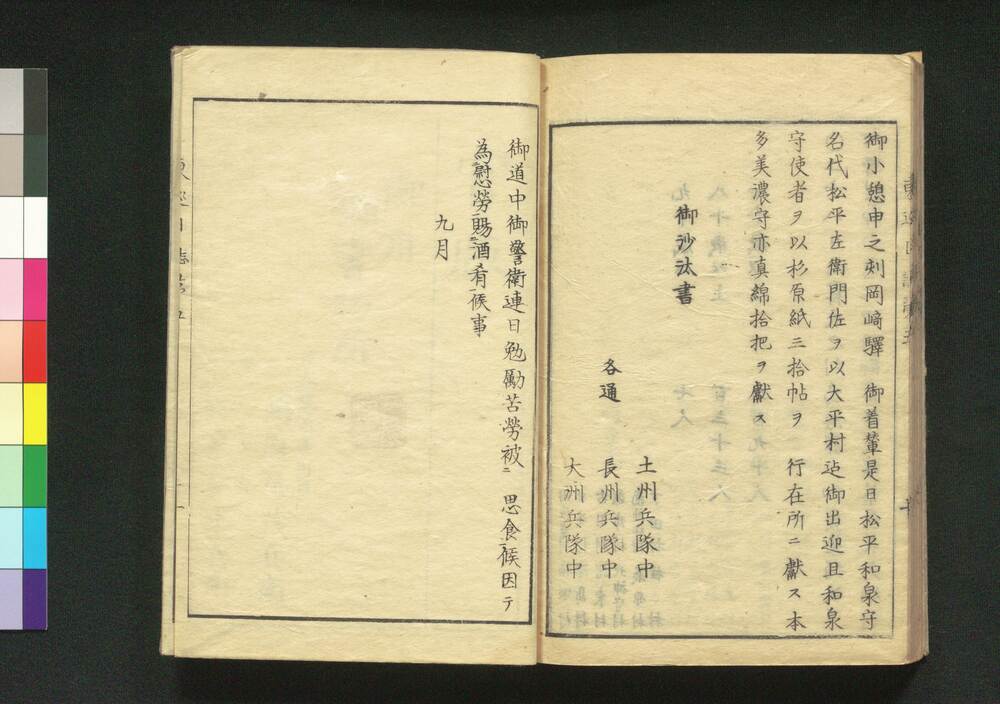 御小憩申之刺岡﨑驛　御着輦是日松平和泉守
名代松平左衛門佐ヲ以大平村迠御出迎且和泉
守使者ヲ以杉原紙三拾帖ヲ　行在所ニ獻ス本
多美濃守亦真綿拾把ヲ獻ス
御沙汰書
土州兵隊中
各通　長州兵隊中
大洲兵隊中
御道中御警衛連日勉勵苦勞被ニ　思食候因テ
為慰勞賜酒肴候事
九月